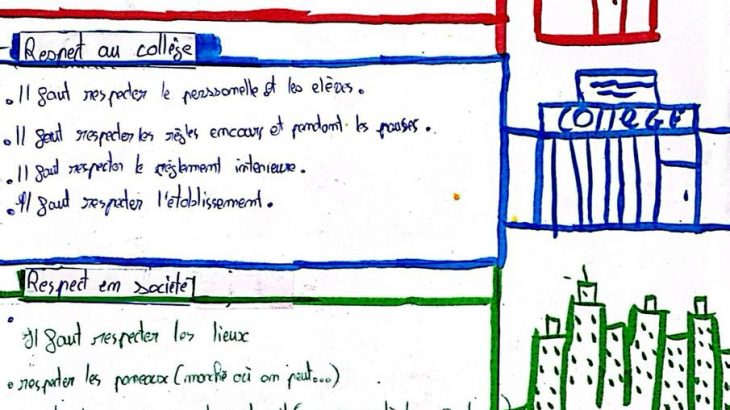 Respect au collège
. Il faut respecter le perssonelle et les elèves.
. Il faut respecter les règles en cours et pendant les pauses.
. Il faut respecter le règlement interieure.
. Il faut respecter l'établissement.
COllEGE
Respect en société
Il faut respecter les lieux
. respecter les panneaux (marche où on peut...)